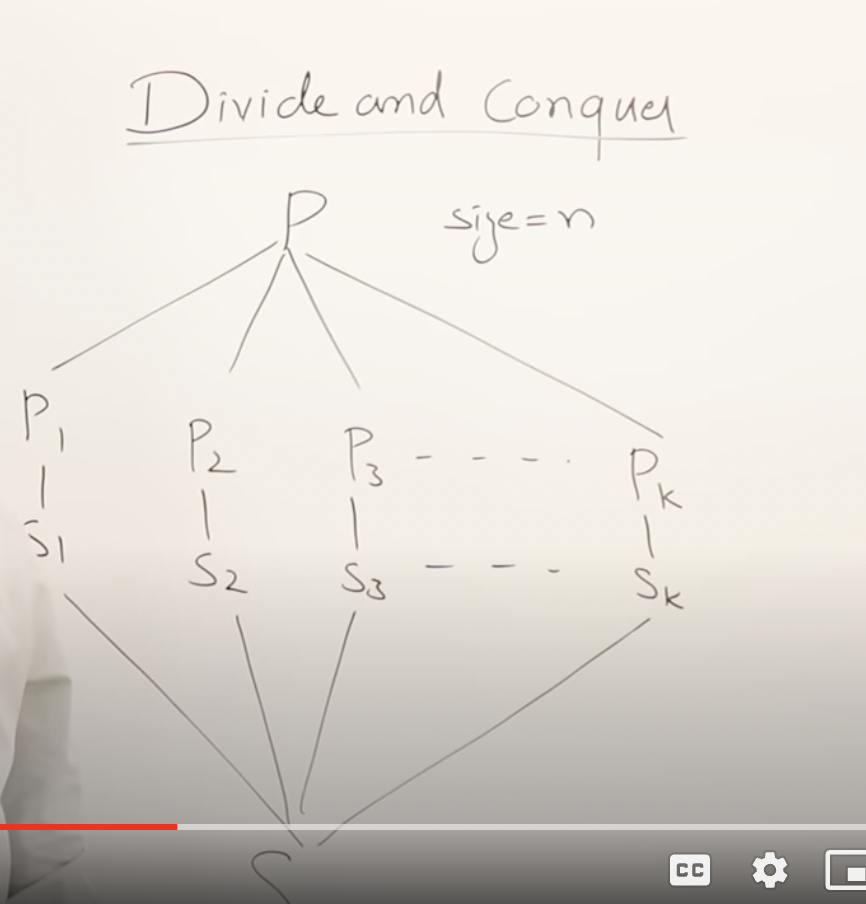 Divide and Conquer
P size = n
P1 P2 P3 - - - . Pk
S1 S2 S3 - - - Sk
S
CC